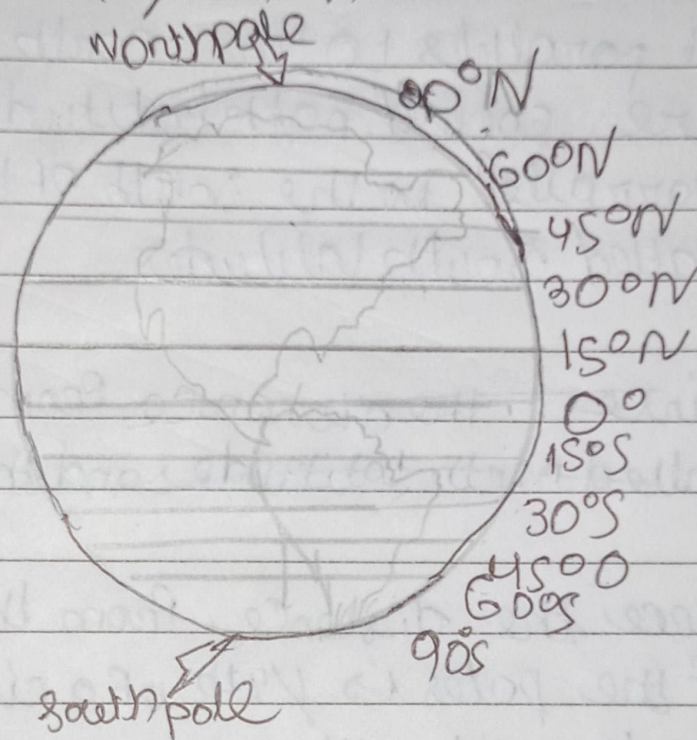 Northpole
90°N
60°N
45°N
30°N
15°N
0°
15°S
30°S
4500
60°S
90°S
southpole